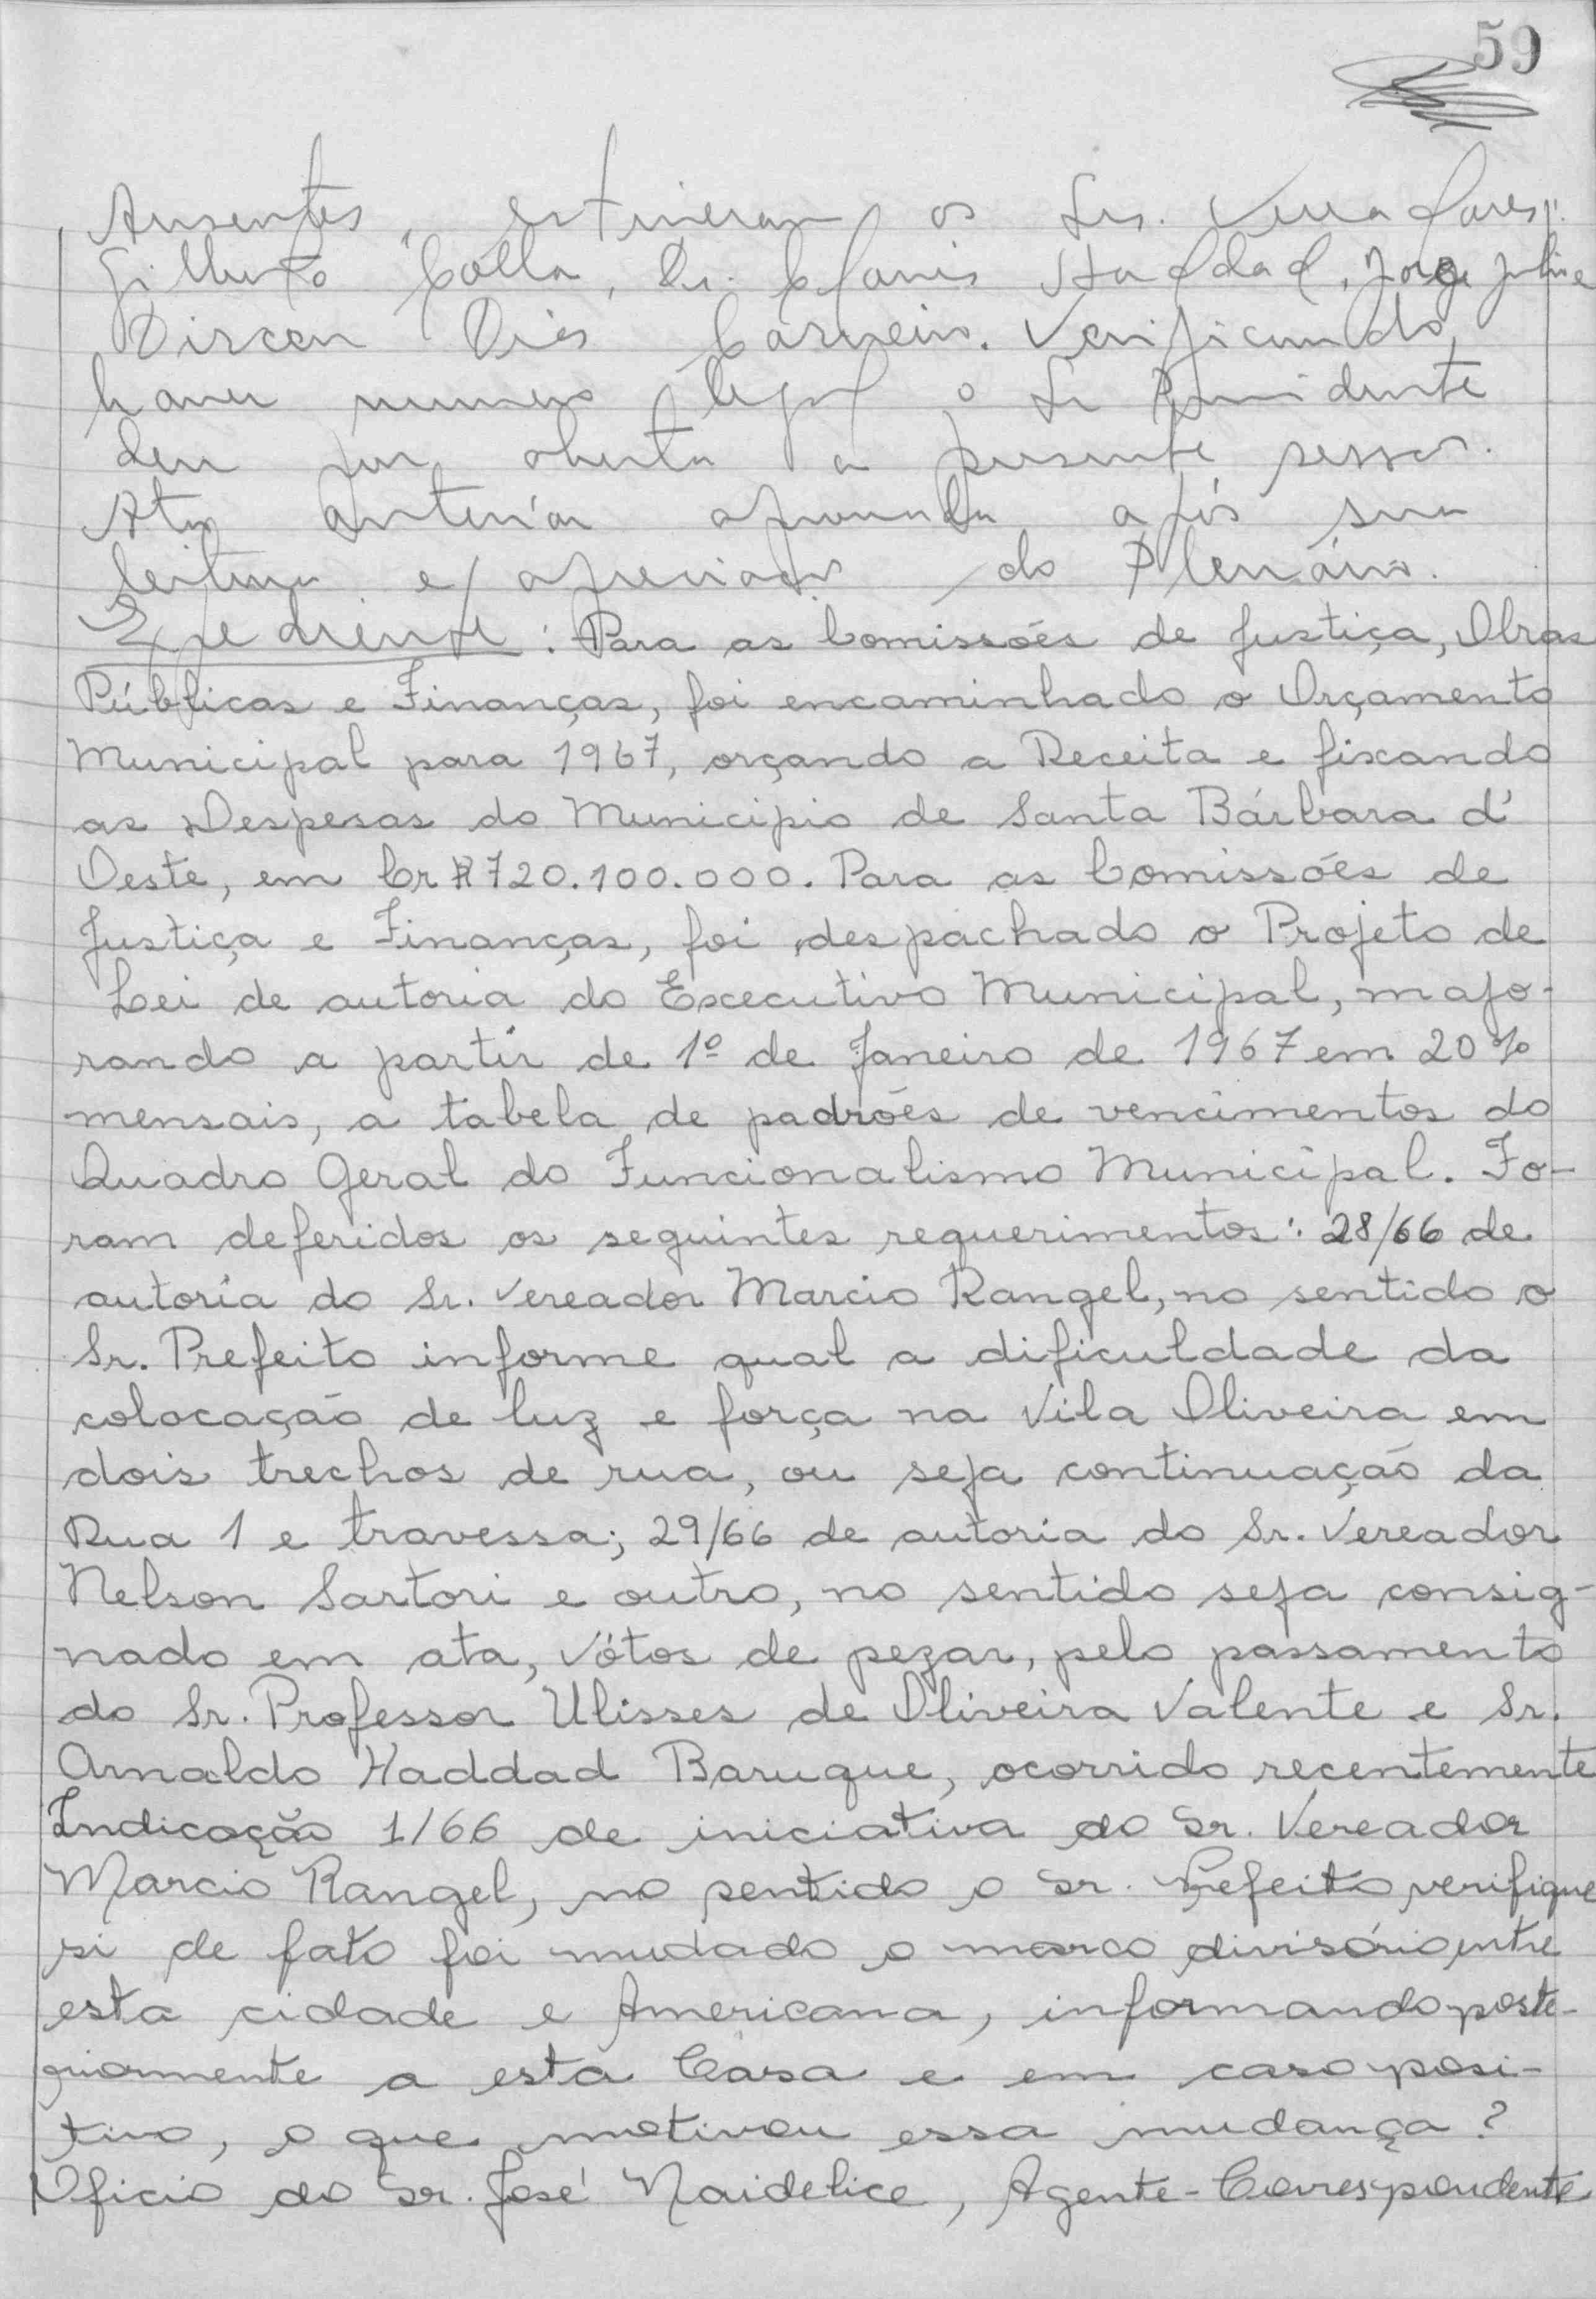 59
Ausentes, estiveram os Srs. Vereadores:
Gilberto Colla, Dr. Clovis Haddad, Jorge Julio e
Dirceu Dias Carneiro. Verificando
haver numero legal o Sr Presidente
deu por aberta a presente sessão.
Ata anterior aprovada após sua
leitura e apreciação do Plenário.
Expediente: Para as Comissões de Justiça, Obras
Públicas e Finanças, foi encaminhado o Orçamento
Municipal para 1967, orçando a Receita e fixando
as Despesas do Municipio de Santa Bárbara d'
Oeste, em Cr$ 720.100.000. Para as Comissões de
Justiça e Finanças, foi despachado o Projeto de
Lei de autoria do Executivo Municipal, majo-
rando a partir de 1º de Janeiro de 1967 em 20%
mensais, a tabela de padrões de vencimentos do
Quadro Geral do Funcionalismo Municipal. Fo-
ram deferidos os seguintes requerimentos: 28/66 de
autoria do Sr. Vereador Marcio Rangel, no sentido o
Sr. Prefeito informe qual a dificuldade da
colocação de luz e força na Vila Oliveira em
dois trechos de rua, ou seja continuação da
Rua 1 e travessa; 29/66 de autoria do Sr. Vereador
Nelson Sartori e outro, no sentido seja consig-
nado em ata, vótos de pezar, pelo passamento
do Sr. Professor Ulisses de Oliveira Valente e Sr.
Arnaldo Haddad Baruque, ocorrido recentemente
Indicação 1/66 de iniciativa do Sr. Vereador
Marcio Rangel, no sentido o Sr. Prefeito verifique
si de fato foi mudado o marco divisório entre
esta cidade e Americana, informando poste-
riormente a esta Casa e em caso posi-
tivo, o que motivou essa mudança?
Oficio do Sr. José Naidelice, Agente-Correspondente